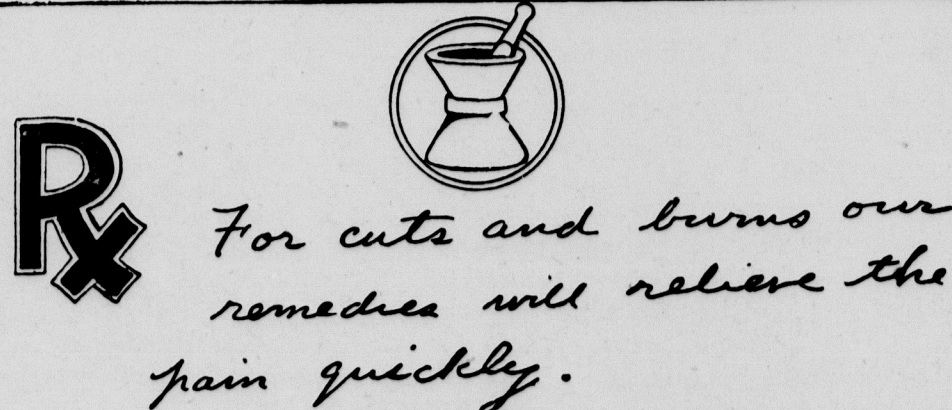 Rx
For cuts and burns our
remedies will relieve the
pain quickly.